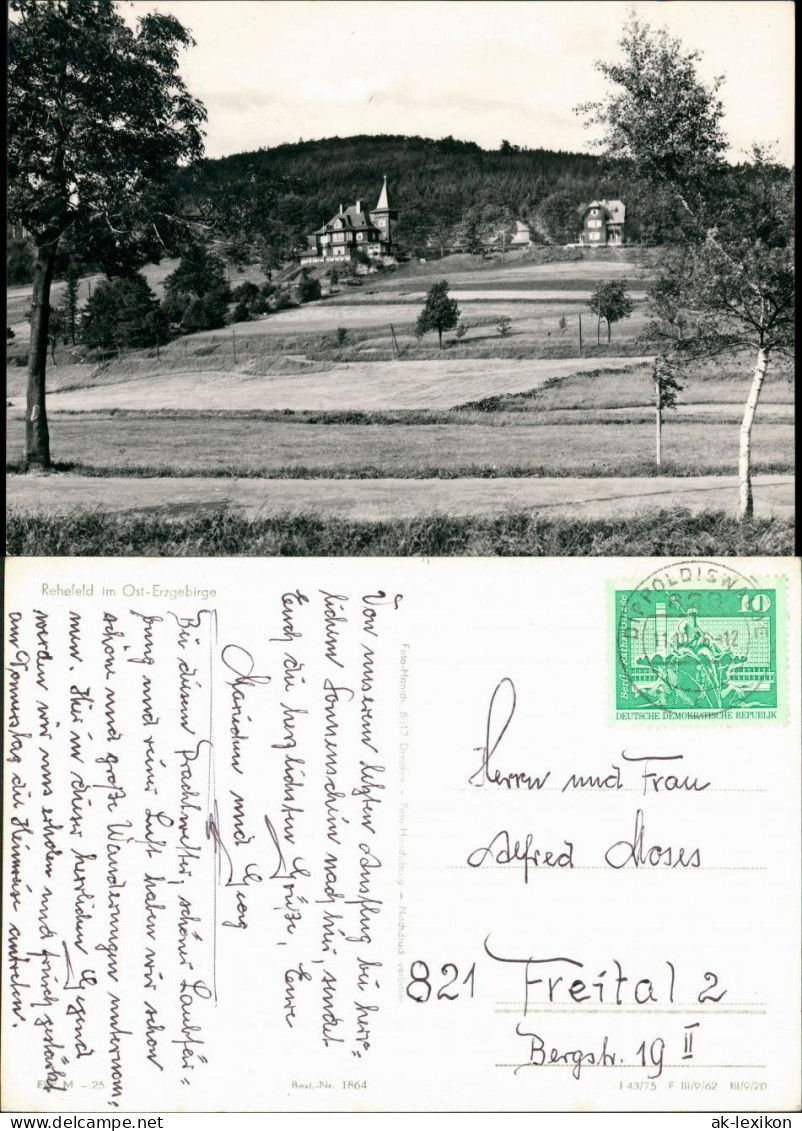 Rehefeld im Ost-Erzgebirge
Von unserem letzten Ausflug bei herr=
lichem Sonnenschein nach hier, sendet
Euch die herzlichsten Grüße, Eure
Maridun und Georg
Bei diesem Prachtwetter, schöner Laubfär=
bung und reiner Luft haben wir schon
schöne und große Wanderungen unternom=
men. Hier in dieser herrlichen Gegend
werden wir uns erholen und frisch gestärkt
am Donnerstag die Heimreise antreten.
M -.25
Best.-Nr. 1864
Foto-Hanich, 8017 Dresden — Foto-Handabzug — Nachdruck verboten
DIPPOLDISWALDE
11.10.76-12
10
DEUTSCHE DEMOKRATISCHE REPUBLIK
Herrn und Frau
Alfred Moses
821 Freital 2
Bergstr. 19 II
J 43/75 F III/9/62 III/9/20
delcampe.net
ak-lexikon